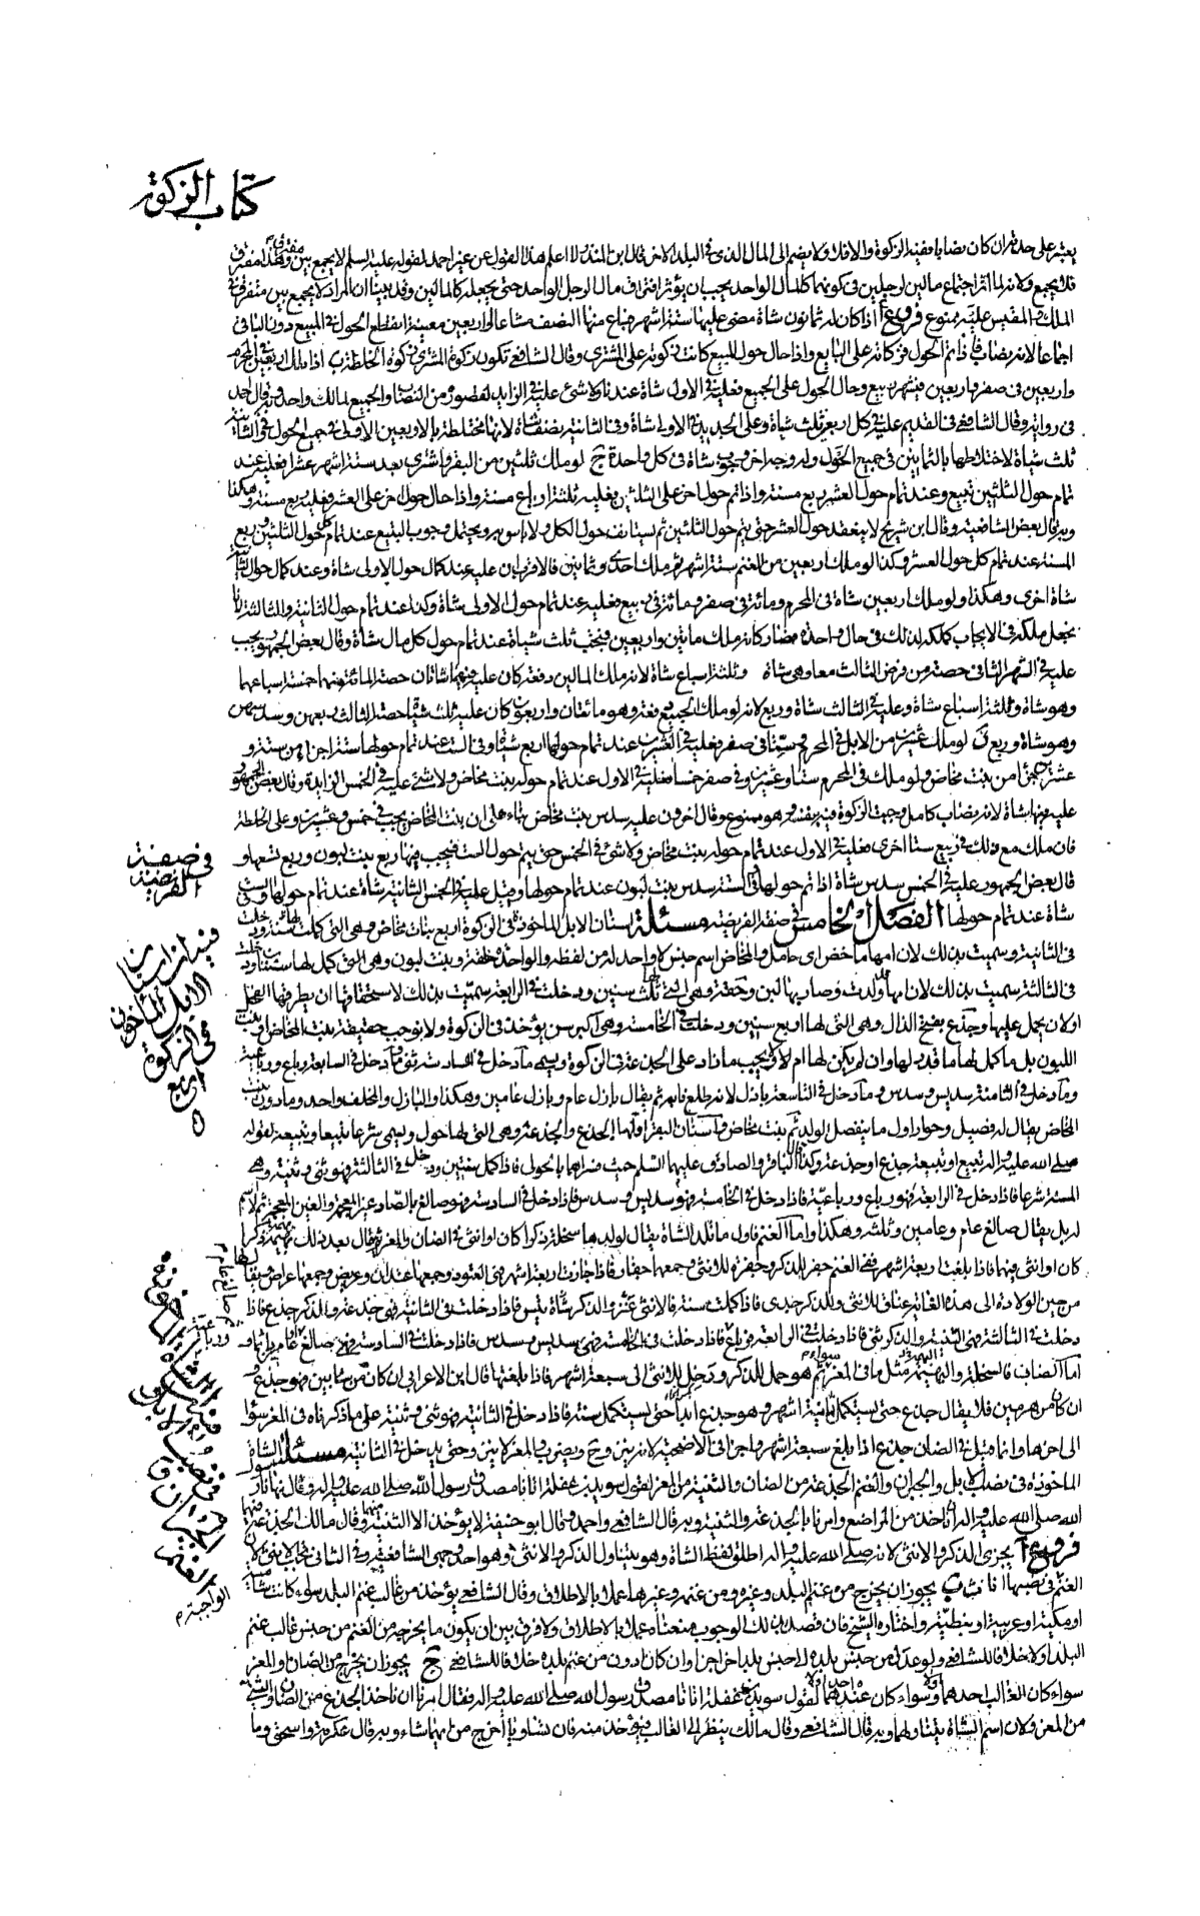 كتاب الزكوة
يعتبر على حدته فان كان نصابا ففيه الزكوة والا فلا ولا يضم الى المال الذى فى البلد الاخر قال ابن المنذر لا اعلم هذا القول عن غير احمد لقوله عليه السلم لا يجمع بين مفترق وهذا مفترق
فلا يجمع ولانه لما اثر اجتماع مالين لرجلين فى كونهما كالمال الواحد يجب ان يؤثر افتراق مال الرجل الواحد حتى يجعله كالمالين وقد بينا ان المراد لا يجمع بين متفرق فى
الملك والمقيس عليه ممنوع فروع ا اذا كان له ثمانون شاة مضى عليها ستة اشهر فباع منها النصف مشاعا او اربعين معينة انقطع الحول فى المبيع دون الباقى
اجماعا لانه نصاب فاذا تم الحول فزكاته على البايع واذا حال حول المبيع كانت زكوته على المشترى وقال الشافعى تكون زكوة المشترى زكوة الخلطة ب اذا ملك اربعين فى المحرم
واربعين فى صفر واربعين فى شهر ربيع وحال الحول على الجميع فعليه فى الاول شاة عندنا ولا شئ عليه فى الزايد لقصوره من النصاب والجميع لمالك واحد وبه قال احمد
فى رواية وقال الشافعى فى القديم عليه فى كل اربعين ثلث شاة وعلى الجديد فى الاولى شاة وفى الثانية نصف شاة لانها مختلطة بالاربعين الاولى فى جميع الحول وفى الثالثة
ثلث شاة لاختلاطها بالثمانين فى جميع الحول وله وجه اخر وجوب شاة فى كل واحدة ج لو ملك ثلثين من البقر واشترى بعد ستة اشهر عشرا فعليه عند
تمام حول الثلثين تبيع وعند تمام حول العشر ربع مسنة واذا تم حول اخر على الثلثين فعليه ثلثة ارباع مسنة واذا حال حول اخر على العشر فعليه ربع مسنة وهكذا
وبه قال بعض الشافعية وقال ابن شريح لا ينعقد حول العشر حتى يتم حول الثلثين ثم يستانف حول الكل ولا باس به ويحتمل وجوب التبيع عند تمام كل حول الثلثين وربع
المسنة عند تمام كل حول العشر وكذا لو ملك اربعين من الغنم ستة اشهر ثم ملك احدى وثمانين فالاقرب ان عليه عند كمال حول الاولى شاة وعند كمال حول الثانية
شاة اخرى وهكذا ولو ملك اربعين شاة فى المحرم ومائة فى صفر ومائة فى ربيع فعليه عند تمام حول الاولى شاة وكذا عند تمام حول الثانية والثالثة لانا
نجعل ملكه فى الايجاب كملكه لذلك فى حال واحدة فصار كانه ملك مائتين واربعين فيجب ثلث شياة عند تمام حول كل مال شاة وقال بعض الجمهور يجب
عليه فى الشهر الثانى حصته من فرض الثالث معا وهى شاة وثلثة اسباع شاة لانه لو ملك المالين دفعة كان عليه فيهما شاتان حصة المائة منهما خمسة اسباعهما
وهو شاة وثلثة اسباع شاة وعليه فى الثالث شاة وربع لانه لو ملك الجميع دفعة وهو مائتان واربعون كان عليه ثلث شياة حصة الثالث ربعهن وسدسهن
وهو شاة وربع د لو ملك عشرين من الابل فى المحرم وستا فى صفر فعليه فى العشرين عند تمام حولها اربع شياه وفى الست عند تمام حولها ستة اجزاء من ستة و
عشرين جزءا من بنت مخاض ولو ملك فى المحرم ستا وعشرين وفى صفر خمسا فعليه فى الاول عند تمام حوله بنت مخاض ولا شئ عليه فى الخمس الزايدة وقال بعض الجمهور
عليه فيها شاة لانه نصاب كامل وجبت الزكوة فيه بنفسه وهو ممنوع وقال اخرون عليه سدس بنت مخاض بناء على ان بنت المخاض يجب فى خمس وعشرين وعلى الخلطة
فان ملك مع ذلك فى ربيع ستا اخرى فعليه فى الاول عند تمام حوله بنت مخاض ولا شئ فى الخمس حتى يتم حول الست فيجب فيها ربع بنت لبون وربع تسعها و
قال بعض الجمهور عليه فى الخمس سدس شاة اذا تم حولها وفى الستة سدس بنت لبون عند تمام حولها وقيل عليه فى الخمس الثانية شاة عند تمام حولها وفى الست
شاة عند تمام حولها الفصل الخامس فى صفة الفريضة مسئلة اسنان الابل الماخوذة فى الزكوة اربع بنات مخاض وهى التى كملت لها سنة ودخلت
فى الثانية وسميت بذلك لان امها ماخض اى حامل والمخاض اسم جنس لا واحد له من لفظه والواحدة خلفة وبنت لبون وهى التى كمل لها سنتان ودخلت
فى الثالثة سميت بذلك لان امها قد ولدت وصار بها لبن وحقة وهى التى لها ثلث سنين ودخلت فى الرابعة سميت بذلك لاستحقاقها ان يطرقها الفحل
او لان يحمل عليها وجذع بفتح الذال وهى التى لها اربع سنين ودخلت فى الخامسة وهى اكبر سن يؤخذ فى الزكوة ولا يوجب حقيقة بنت المخاض او بنت
اللبون بل ما كمل لها ما قدر لها وان لم يكن لها ام لا ولا يجب ما زاد على الجذعة فى الزكوة ويسمى ما دخل فى السادسة ثنى وما دخل فى السابعة رباع ورباعية
وما دخل فى الثامنة سديس وسدس وما دخل فى التاسعة بازل لانه طلع نابه ثم يقال بازل عام وبازل عامين وهكذا والبازل والمخلف واحد وما دون بنت
المخاض يقال له فصيل وحوار اول ما ينفصل الولد ثم بنت مخاض واسنان البقر اولها الجذع والجذعة وهى التى لها حول ويسمى شرعا تبيعا وتبيعة لقوله
صلى الله عليه واله تبيع او تبيعة جذع او جذعة وكذا قال الباقر والصادق عليهما السلم حيث فسراهما بالحولى فاذا كمل سنتين ودخل فى الثالثة فهو ثنى وثنية وهى
المسنة شرعا فاذا دخل فى الرابعة فهو رباع ورباعية فاذا دخل فى الخامسة فهو سديس وسدس فاذا دخل فى السادسة فهو صالغ بالصاد غير المعجمة والغين المعجمة ثم لا اسم
له بل يقال صالغ عام وعامين وثلثة وهكذا واما الغنم فاول ما تلد الشاة يقال لولدها سخلة ذكرا كان او انثى فى الضان والمعز ثم يقال بعد ذلك بهمة ذكرا
كان او انثى فيها فاذا بلغت اربعة اشهر ففى الغنم جفر للذكر وجفرة للانثى وجمعها جفار فاذا جازت اربعة اشهر فهى العتود وجمعها عتدان وعريض وجمعها عراض ويقال لها
من حين الولادة الى هذه الغاية عناق للانثى وللذكر جدى فاذا كملت سنة فالانثى عنز والذكر تيس فاذا دخلت فى الثانية فهى جذعة والذكر جذع فاذا
دخلت فى الثالثة فهى الثنية والذكر ثنى فاذا دخلت فى الرابعة فرباع فاذا دخلت فى الخامسة فهى سديس وسدس فاذا دخلت فى السادسة فهى صالغ
اما الضان فالسخلة والبهمة مثل ما فى المعز سواء ثم هو حمل للذكر ورخل للانثى الى سبعة اشهر فاذا بلغتها قال ابن الاعرابى ان كان من شابين فهو جذع و
ان كان من هرمين فلا يقال جذع حتى يستكمل ثمانية اشهر وهو جذع ابدا حتى يستكمل سنة فاذا دخل فى الثانية فهو ثنى وثنية على ما ذكرناه فى المعز سواء
الى اخرها وانما قيل فى الضان جذع اذا بلغ سبعة اشهر واجزا فى الاضحية لانه ينزو ح ويضرب والمعز لا ينزو حتى يدخل فى الثانية مسئلة الشاة
الماخوذة فى نصب الابل والجبران والغنم الجذعة من الضان والثنية من المعز لقول سويد بن غفلة اتانا مصدق رسول الله صلى الله عليه واله وقال نهانا رسول
الله صلى الله عليه واله ان ناخذ من المراضع وامرنا بالجذعة والثنية وبه قال الشافعى واحمد وقال ابو حنيفة لا يؤخذ الا الثنية منهما وقال مالك الجذعة منهما
فروع ا يجزى الذكر والانثى لانه صلى الله عليه واله اطلق لفظ الشاة وهو يتناول الذكر والانثى وهو احد وجهى الشافعية وفى الثانى يجب الانثى لان
الغنم فى نصبها اناث ب يجوز ان يخرج من غنم البلد وغيره ومن غنمه وغيرها عملا بالاطلاق وقال الشافعى يؤخذ من غالب غنم البلد سواء كانت شامية
او مكية او عربية او نبطية واختاره الشيخ فان قصد بذلك الوجوب منعناه عملا بالاطلاق ولا فرق بين ان يكون ما يخرجه من الغنم من جنس غالب غنم
البلد او لا خلافا للشافعى ولو عدل من جنس بلده الى جنس بلد اخر اجزأ وان كان ادون من غنم بلده خلافا للشافعى ج يجوز ان يخرج من الضان والمعز
سواء كان الغالب احدهما او لا وسواء كان عنده احدهما او لا لقول سويد بن غفلة اتانا مصدق رسول الله صلى الله عليه واله فقال امرنا ان ناخذ الجذع من الضان والثنية
من المعز ولان اسم الشاة يتناولهما وبه قال الشافعى وقال مالك ينظر الى الغالب فيؤخذ منه فان تساويا اخرج من ايهما شاء وبه قال عكرمة واسحق وما
فى صفة
الفريضة
فى بيان اسنان
الابل الماخوذة
فى الزكوة
اربع